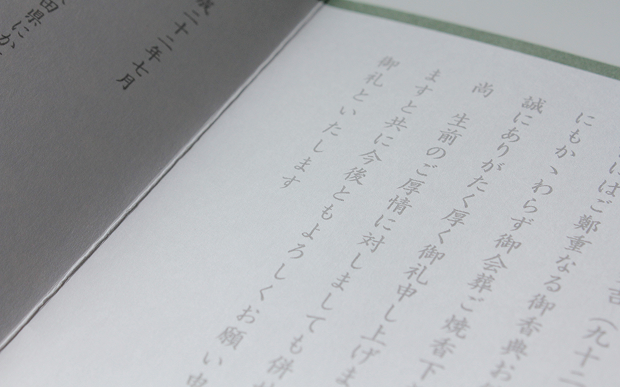 吉（九十二
にはご鄭重なる御香典お
にもかゝわらず御会葬ご焼香下
誠にありがたく厚く御礼申し上げま
尚　生前のご厚情に対しましても併せ
ますと共に今後ともよろしくお願い申
御礼といたします
成二十二年七月
田県にか